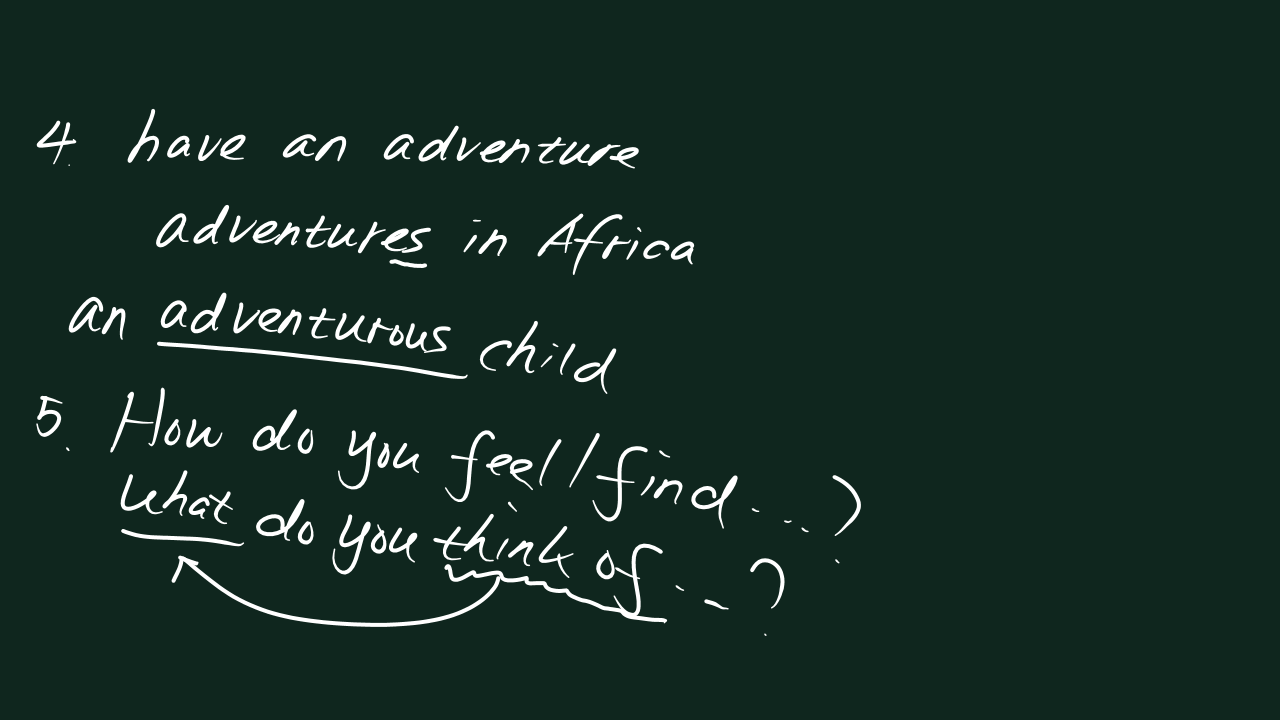 4. have an adventure
adventures in Africa
an adventurous child
5. How do you feel/find...?
What do you think of...?